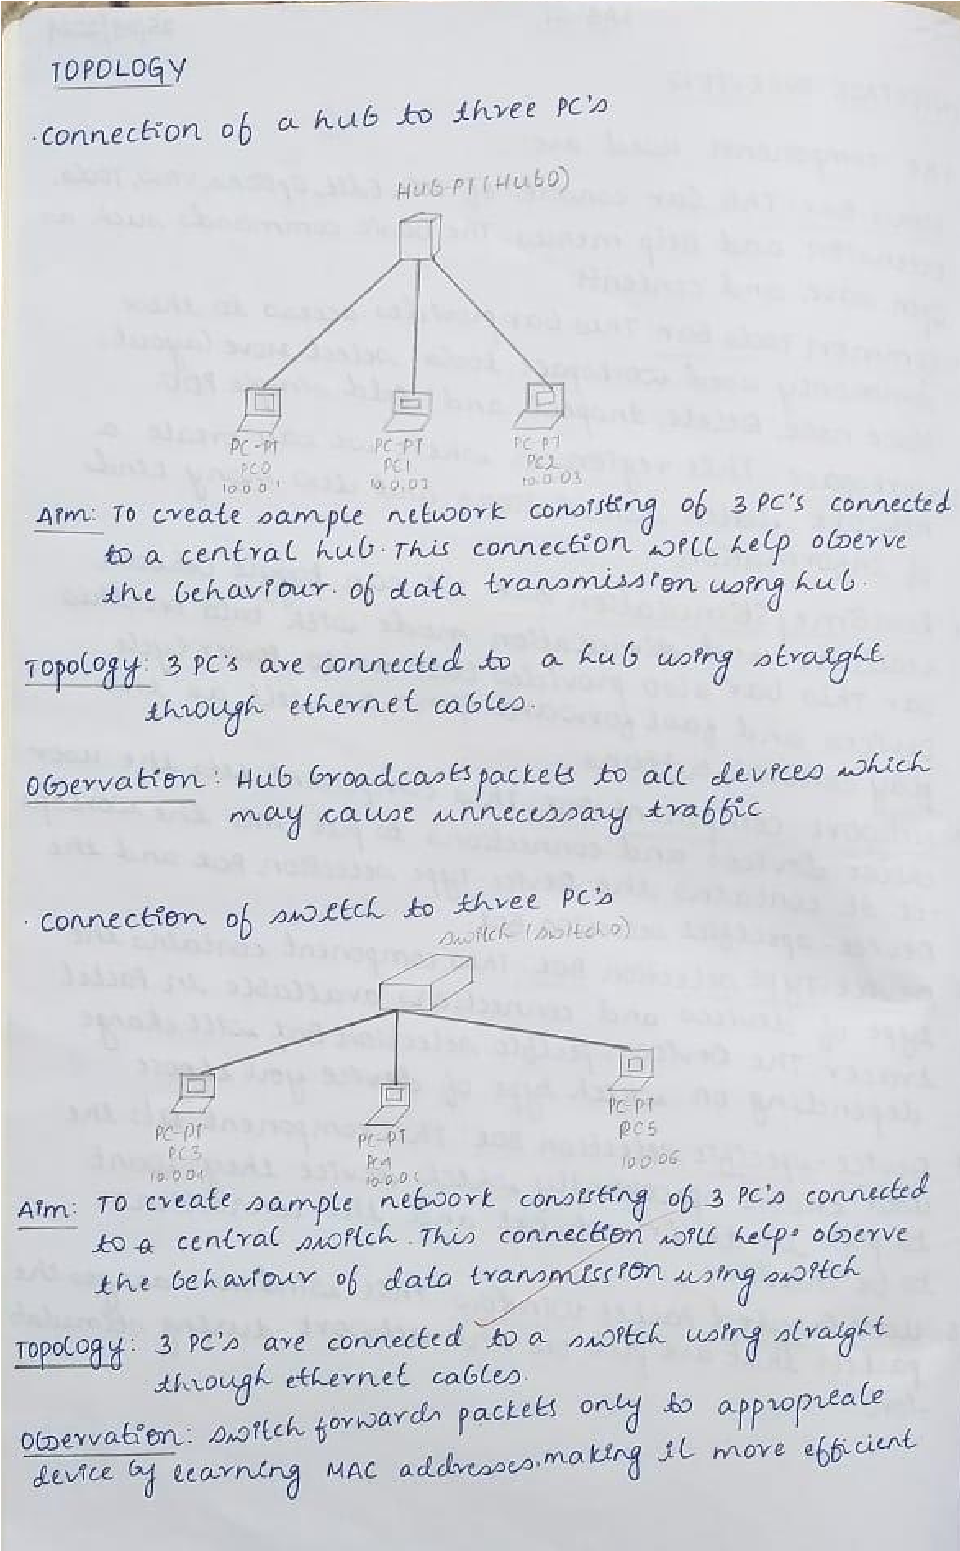 TOPOLOGY
. Connection of a hub to three PC's
HUB-PT (HUB0)
PC-PT PC-PT PC-PT
PC0 PC1 PC2
10.0.03
Aim: To create sample network consisting of 3 PC's connected
to a central hub. This connection will help observe
the behaviour. of data transmission using hub.
Topology: 3 PC's are connected to a hub using straight
through ethernet cables.
Observation: Hub broadcasts packets to all devices which
may cause unnecessary traffic
. connection of switch to three PC's
switch (switch0)
PC-PT PC-PT PC-PT
PC3 PC4 PC5
10.0.06
Aim: To create sample network consisting of 3 PC's connected
to a central switch. This connection will help observe
the behaviour of data transmission using switch
Topology: 3 PC's are connected to a switch using straight
through ethernet cables.
Observation: switch forwards packets only to appropreate
device by learning MAC addresses.making it more efficient